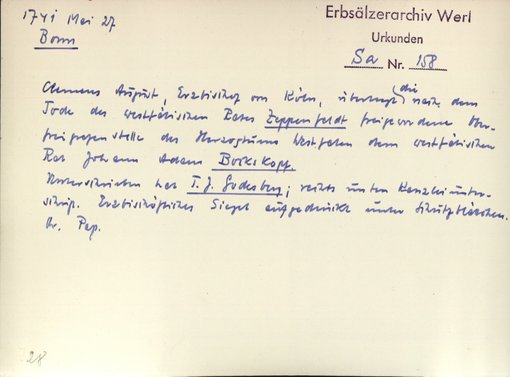 1741 Mai 27
Bonn
Erbsälzerarchiv Werl
Urkunden
Sa Nr. 158
Clemens August, Erzbischof von Köln, überträgt die nach dem
Tode des westfälischen Rates Zeppenfeldt freigewordene
stelle des Herzogtums Westfalen dem westfälischen
Rat Johann Adam Bockskopf
Unterschrieben hat T. J. Godesberg; rechts unten Kanzleiunter-
schrift. Erzbischöfliches Siegel aufgedrückt unter Schutzblättchen.
Or. Pap.
28